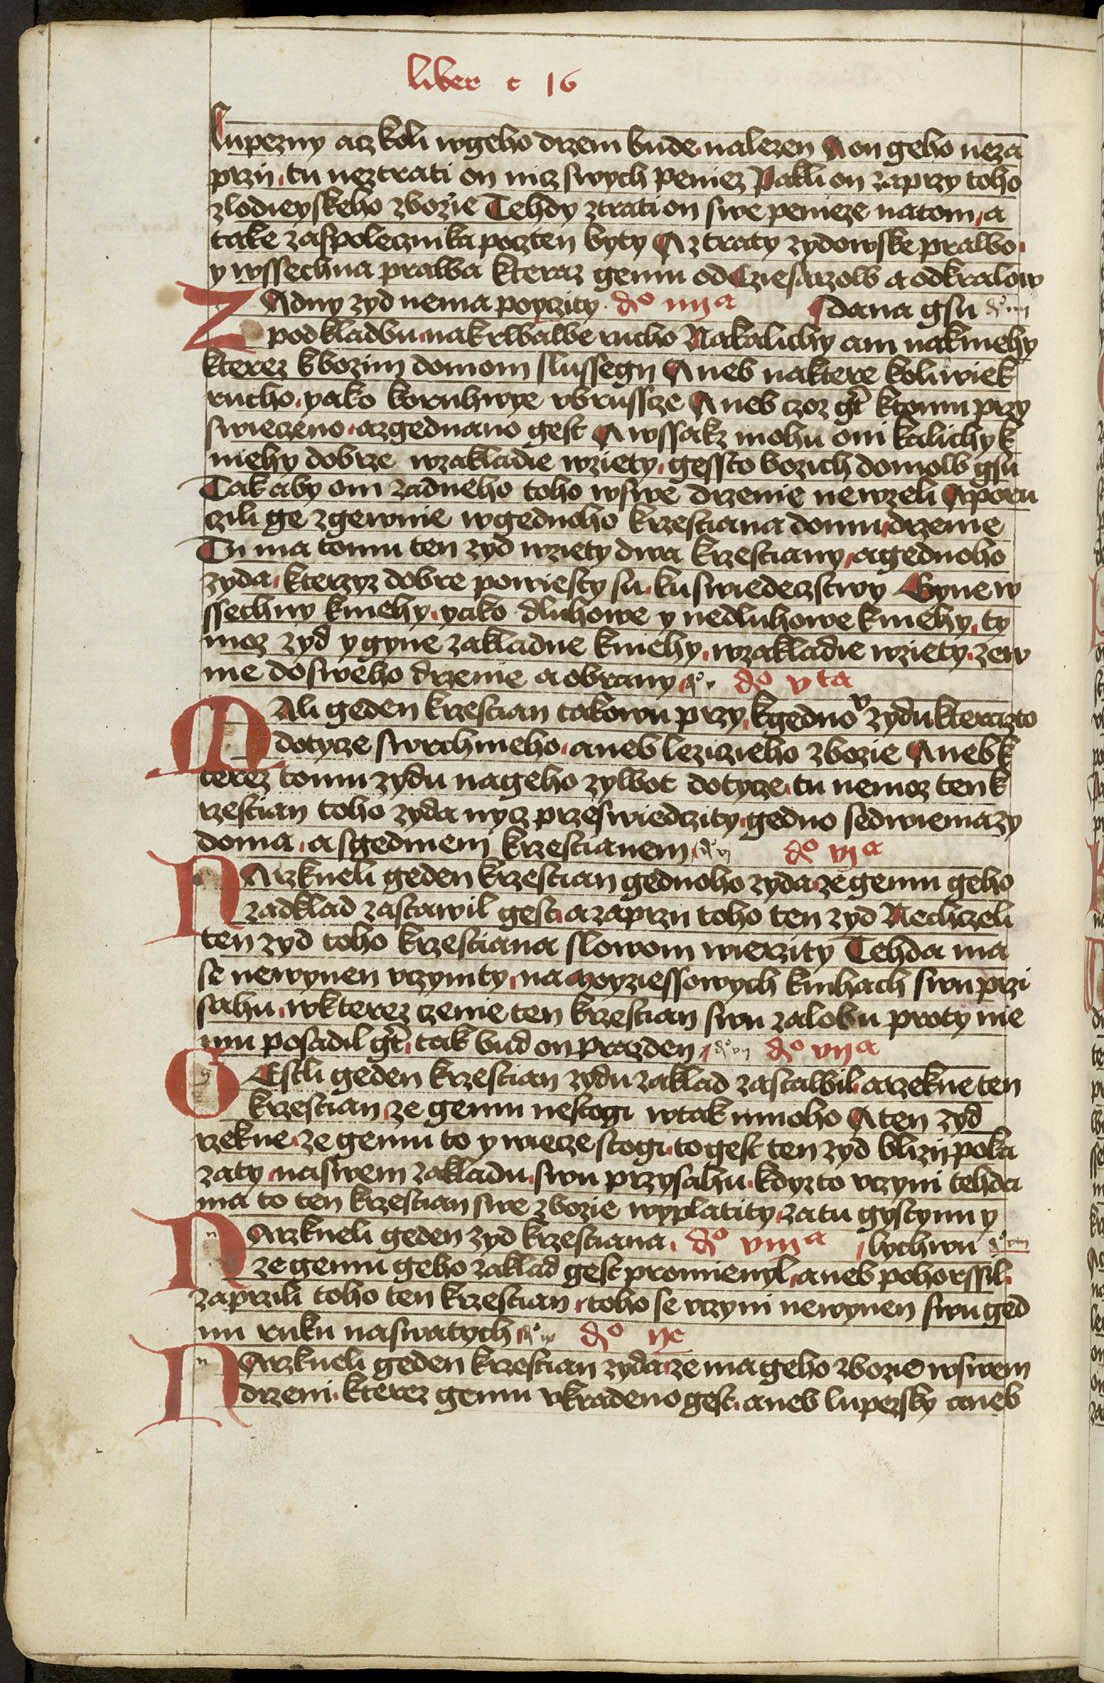 liber c 16
lupezny aczkoli wgeho drzem bude nalezen A on geho neza
przii tu neztrati on nicz swych peniez Pakli on zaprzy toho
zlodieyskeho zbozie Tehdy ztrati on swe penieze natom a
take za spolecznika poczten byty A ztraty zydowske prawo
y wssechna prawa kteraz gemu od Cziesarzow a odkralow
ZAdny zyd nema poyczity do iiija dana gsu
podkladbu nakrwawe rucho Nakalichy ani nakniehy
kterez kbozim domom slussegii A neb naktere koli wiek
rucho yako koruhwye vbrussze A neb czoz gt ktomu przy
swieczeno a zgednano gest A wssakz mohu oni kalichy k
niehy dobrze wzakladie wziety gessto bozich domow gsu
Tak aby oni zadneho toho wswe drzenie newzeli A poru
czili ge zgewnie wgednoho krzestiana domu drzenie
Tu ma tomu ten zyd wziety dwa krzestiany a gednoho
zyda kterzyz dobre powiesty su ku swiedeczstwy Gyne w
ssechny kniehy yako dluhowe y nedluhowe kniehy ty
moz zyd y gyne zakladne kniehy wzakladie wziety zew
nie do sweho drzenie a obrany do vta
MAli geden krzestian takowu przy kgednov zydu kterazto
dotycze swrchnieho aneb lezicieho zbozie A neb k
terez tomu zydu nageho zywot dotycze tu nemoz ten k
rzestian toho zyda nycz przeswiedczity gedno sedwiema zy
doma a sgedniem krzestianem do vja
NArzkneli geden krzestian gednoho zyda ze gemu geho
zadklad zastawil gest a zaprzii toho ten zyd Nechczeli
ten zyd toho krzestiana slowom wierzity Tehda ma
se newynen vczynity na Moyziessowych knihach swu przi
sahu wkterez czenie ten krzestian swu zalobu proty nie
mu posadil gt tak bud on prazden do vija
GEstli geden krzestian zydu zaklad zastawil a rzekne ten
krzestian ze gemu nestogi wtak mnoho A ten zyd
rzekne ze gemu to y wiecze stogi to gest ten zyd blizii poka
zaty na swem zakladu swu przysahu kdyzto vczyni tehda
ma to ten krzestian swe zbozie wyplatity za tu gystynu y
NArzkneli geden zyd krzestiana do viija lychwu
ze gemu geho zaklad gest promienyl aneb pohorssil
zaprzili toho ten krzestian toho se vczyni newynen swu ged
nu ruku naswatych do ix
NArzkneli geden krzestian zyda ze ma geho zbozie wswem
drzeni kterez gemu vkradeno gest aneb lupezsky aneb